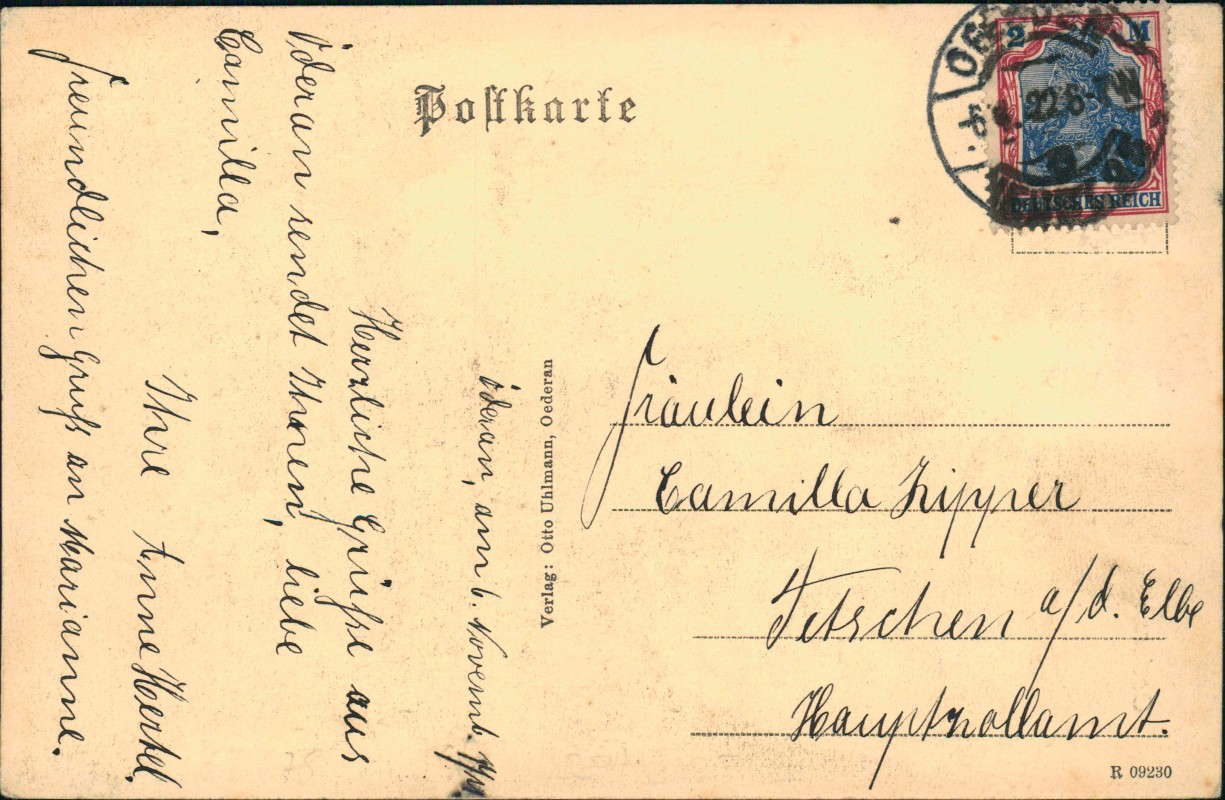 Postkarte
2 M
DEUTSCHES REICH
Öderan, am 6. Novemb.
Herzliche Grüße aus
Öderan sendet Ihnen, liebe
Camilla,
Ihre Anne Hertel.
freundlichen Gruß an Marianne.
Verlag: Otto Uhlmann, Oederan
Fräulein
Camilla Zipper
Tetschen a/d. Elbe
Hauptzollamt.
R 09230